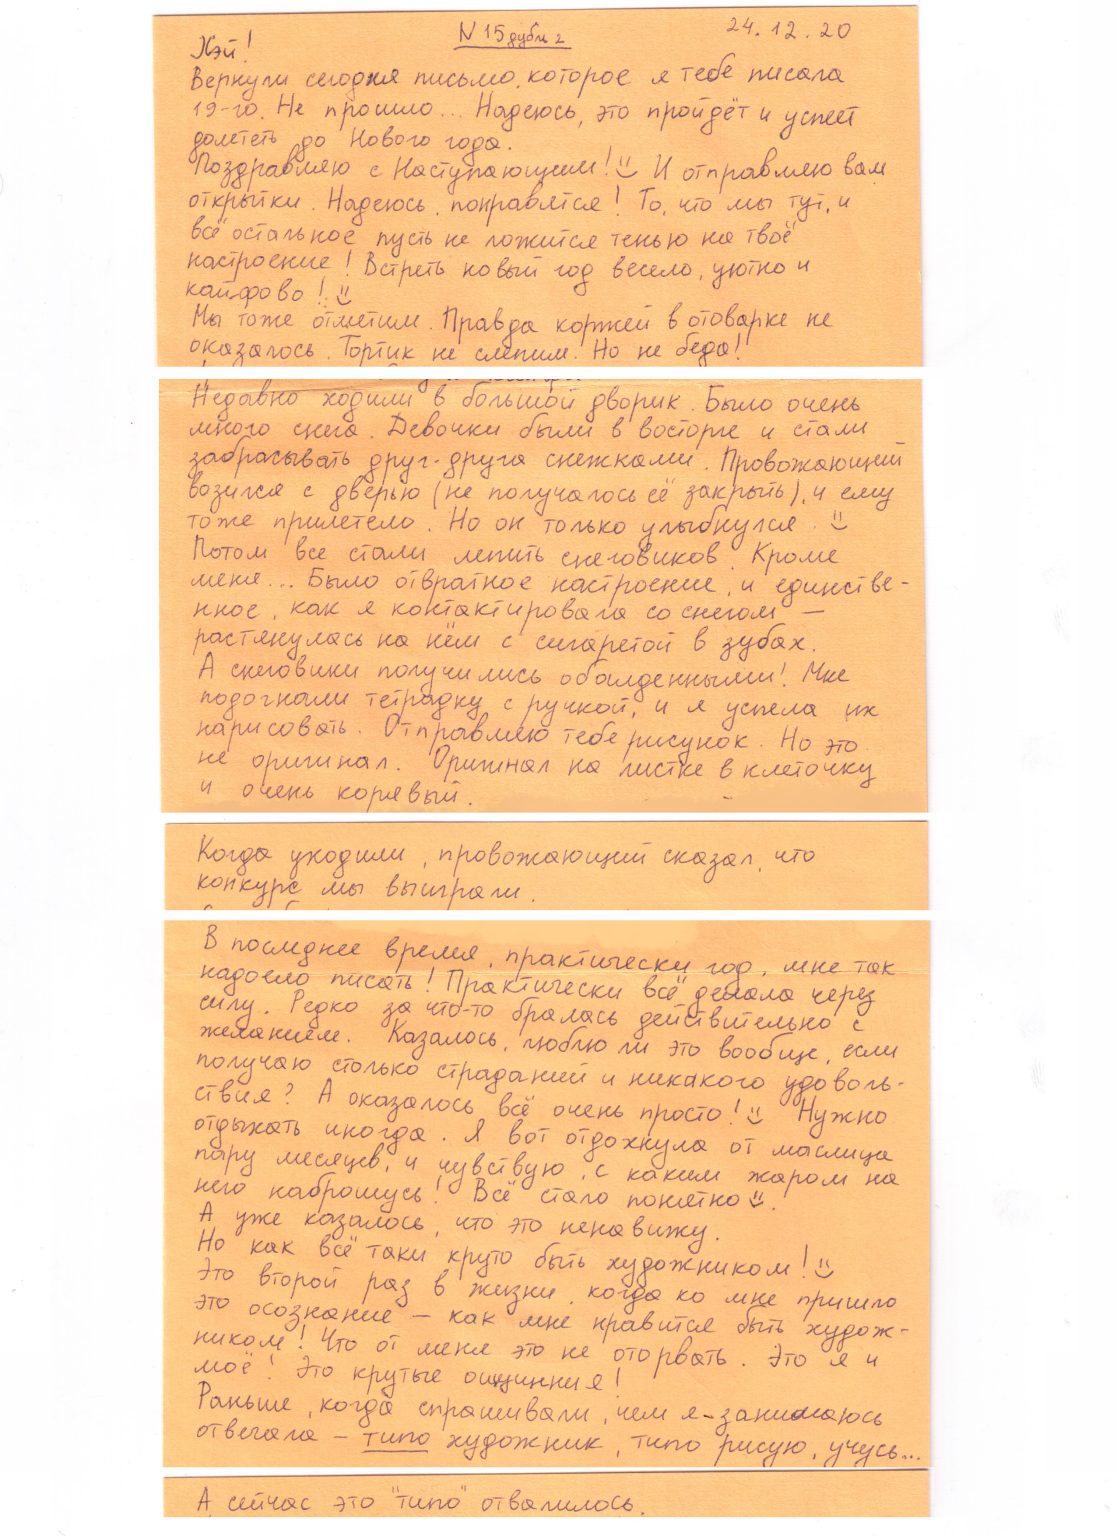 N 15 дубль 2
24.12.20
Хэй!
Вернули сегодня письмо, которое я тебе писала
19-го. Не прошло... Надеюсь, это пройдёт и успеет
долететь до Нового года.
Поздравляю с Наступающим! И отправляю вам
открытки. Надеюсь, понравятся! То, что мы тут, и
всё остальное пусть не ложится тенью на твоё
настроение! Встреть новый год весело, уютно и
кайфово!
Мы тоже отметим. Правда коржей в отоварке не
оказалось. Тортик не слепим. Но не беда!
Недавно ходили в большой дворик. Было очень
много снега. Девочки были в восторге и стали
забрасывать друг-друга снежками. Провожающий
возился с дверью (не получалось её закрыть), и ему
тоже прилетело. Но он только улыбнулся.
Потом все стали лепить снеговиков. Кроме
меня... Было отвратное настроение, и единстве-
нное, как я контактировала со снегом —
растянулась на нём с сигаретой в зубах.
А снеговики получились обалденными! Мне
подогнали тетрадку с ручкой, и я успела их
нарисовать. Отправляю тебе рисунок. Но это
не оригинал. Оригинал на листке в клеточку
и очень корявый.
Когда уходили, провожающий сказал, что
конкурс мы выиграли.
В последнее время, практически год, мне так
надоело писать! Практически всё делала через
силу. Редко за что-то бралась действительно с
желанием. Казалось, люблю ли это вообще, если
получаю столько страданий и никакого удоволь-
ствия? А оказалось всё очень просто! Нужно
отдыхать иногда. Я вот отдохнула от маслица
пару месяцев, и чувствую, с каким жаром на
него наброшусь! Всё стало понятно.
А уже казалось, что это ненавижу.
Но как всё таки круто быть художником!
Это второй раз в жизни, когда ко мне пришло
это осознание — как мне нравится быть худож-
ником! Что от меня это не оторвать. Это я и
моё! Это крутые ощущения!
Раньше, когда спрашивали, чем я занимаюсь
отвечала — типо художник, типо рисую, учусь...
А сейчас это "типо" отвалилось.